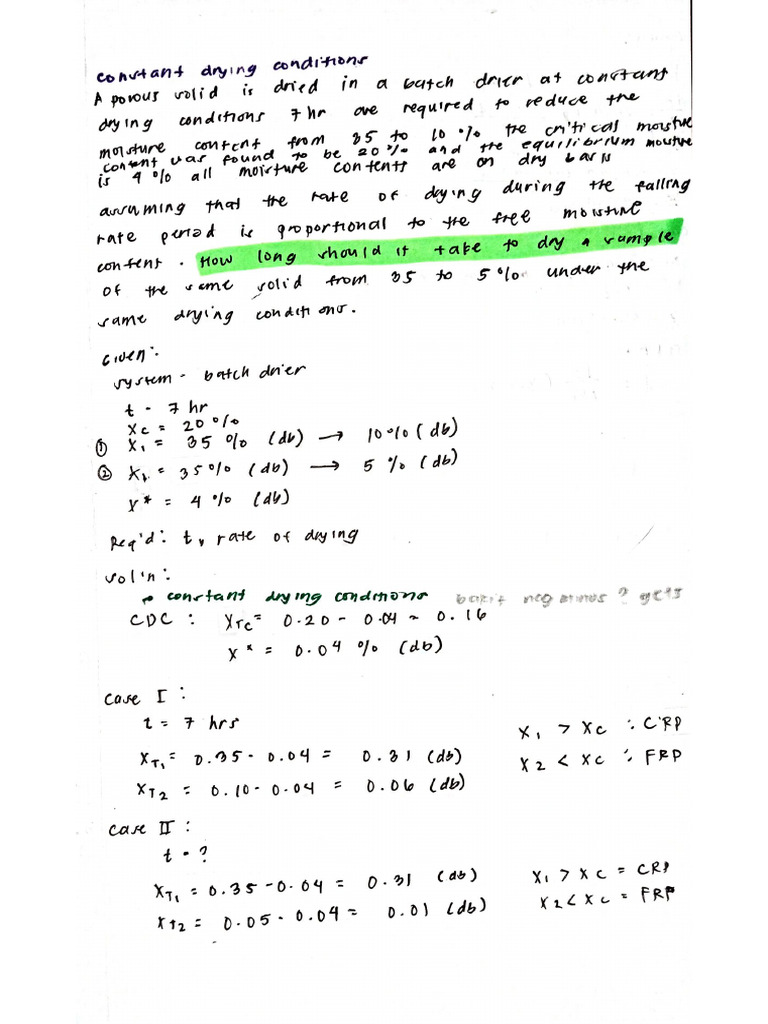 constant drying conditions
A porous solid is dried in a batch drier at constant
drying conditions 7 hr are required to reduce the
moisture content from 35 to 10 % the critical moisture
content was found to be 20 % and the equilibrium moisture
is 4 % all moisture contents are on dry basis
assuming that the rate of drying during the falling
rate period is proportional to the free moisture
content. How long should it take to dry a sample
of the same solid from 35 to 5 % under the
same drying conditions.
Given:
system - batch drier
t - 7 hr
Xc = 20 %
① X₁ = 35 % (db) → 10% (db)
② X₁ = 35% (db) → 5 % (db)
X* = 4 % (db)
Req'd: t, rate of drying
sol'n:
constant drying conditions bakit neg minus? gets
CDC : XTc = 0.20 - 0.04 = 0.16
X* = 0.04 % (db)
Case I :
t = 7 hrs
X₁ > Xc ∴ CRP
XT₁ = 0.35 - 0.04 = 0.31 (db)
X2 < Xc ∴ FRP
XT2 = 0.10 - 0.04 = 0.06 (db)
Case II :
t = ?
XT₁ = 0.35 - 0.04 = 0.31 (db) X₁ > Xc = CRP
XT2 = 0.05 - 0.04 = 0.01 (db) X2 < Xc = FRP